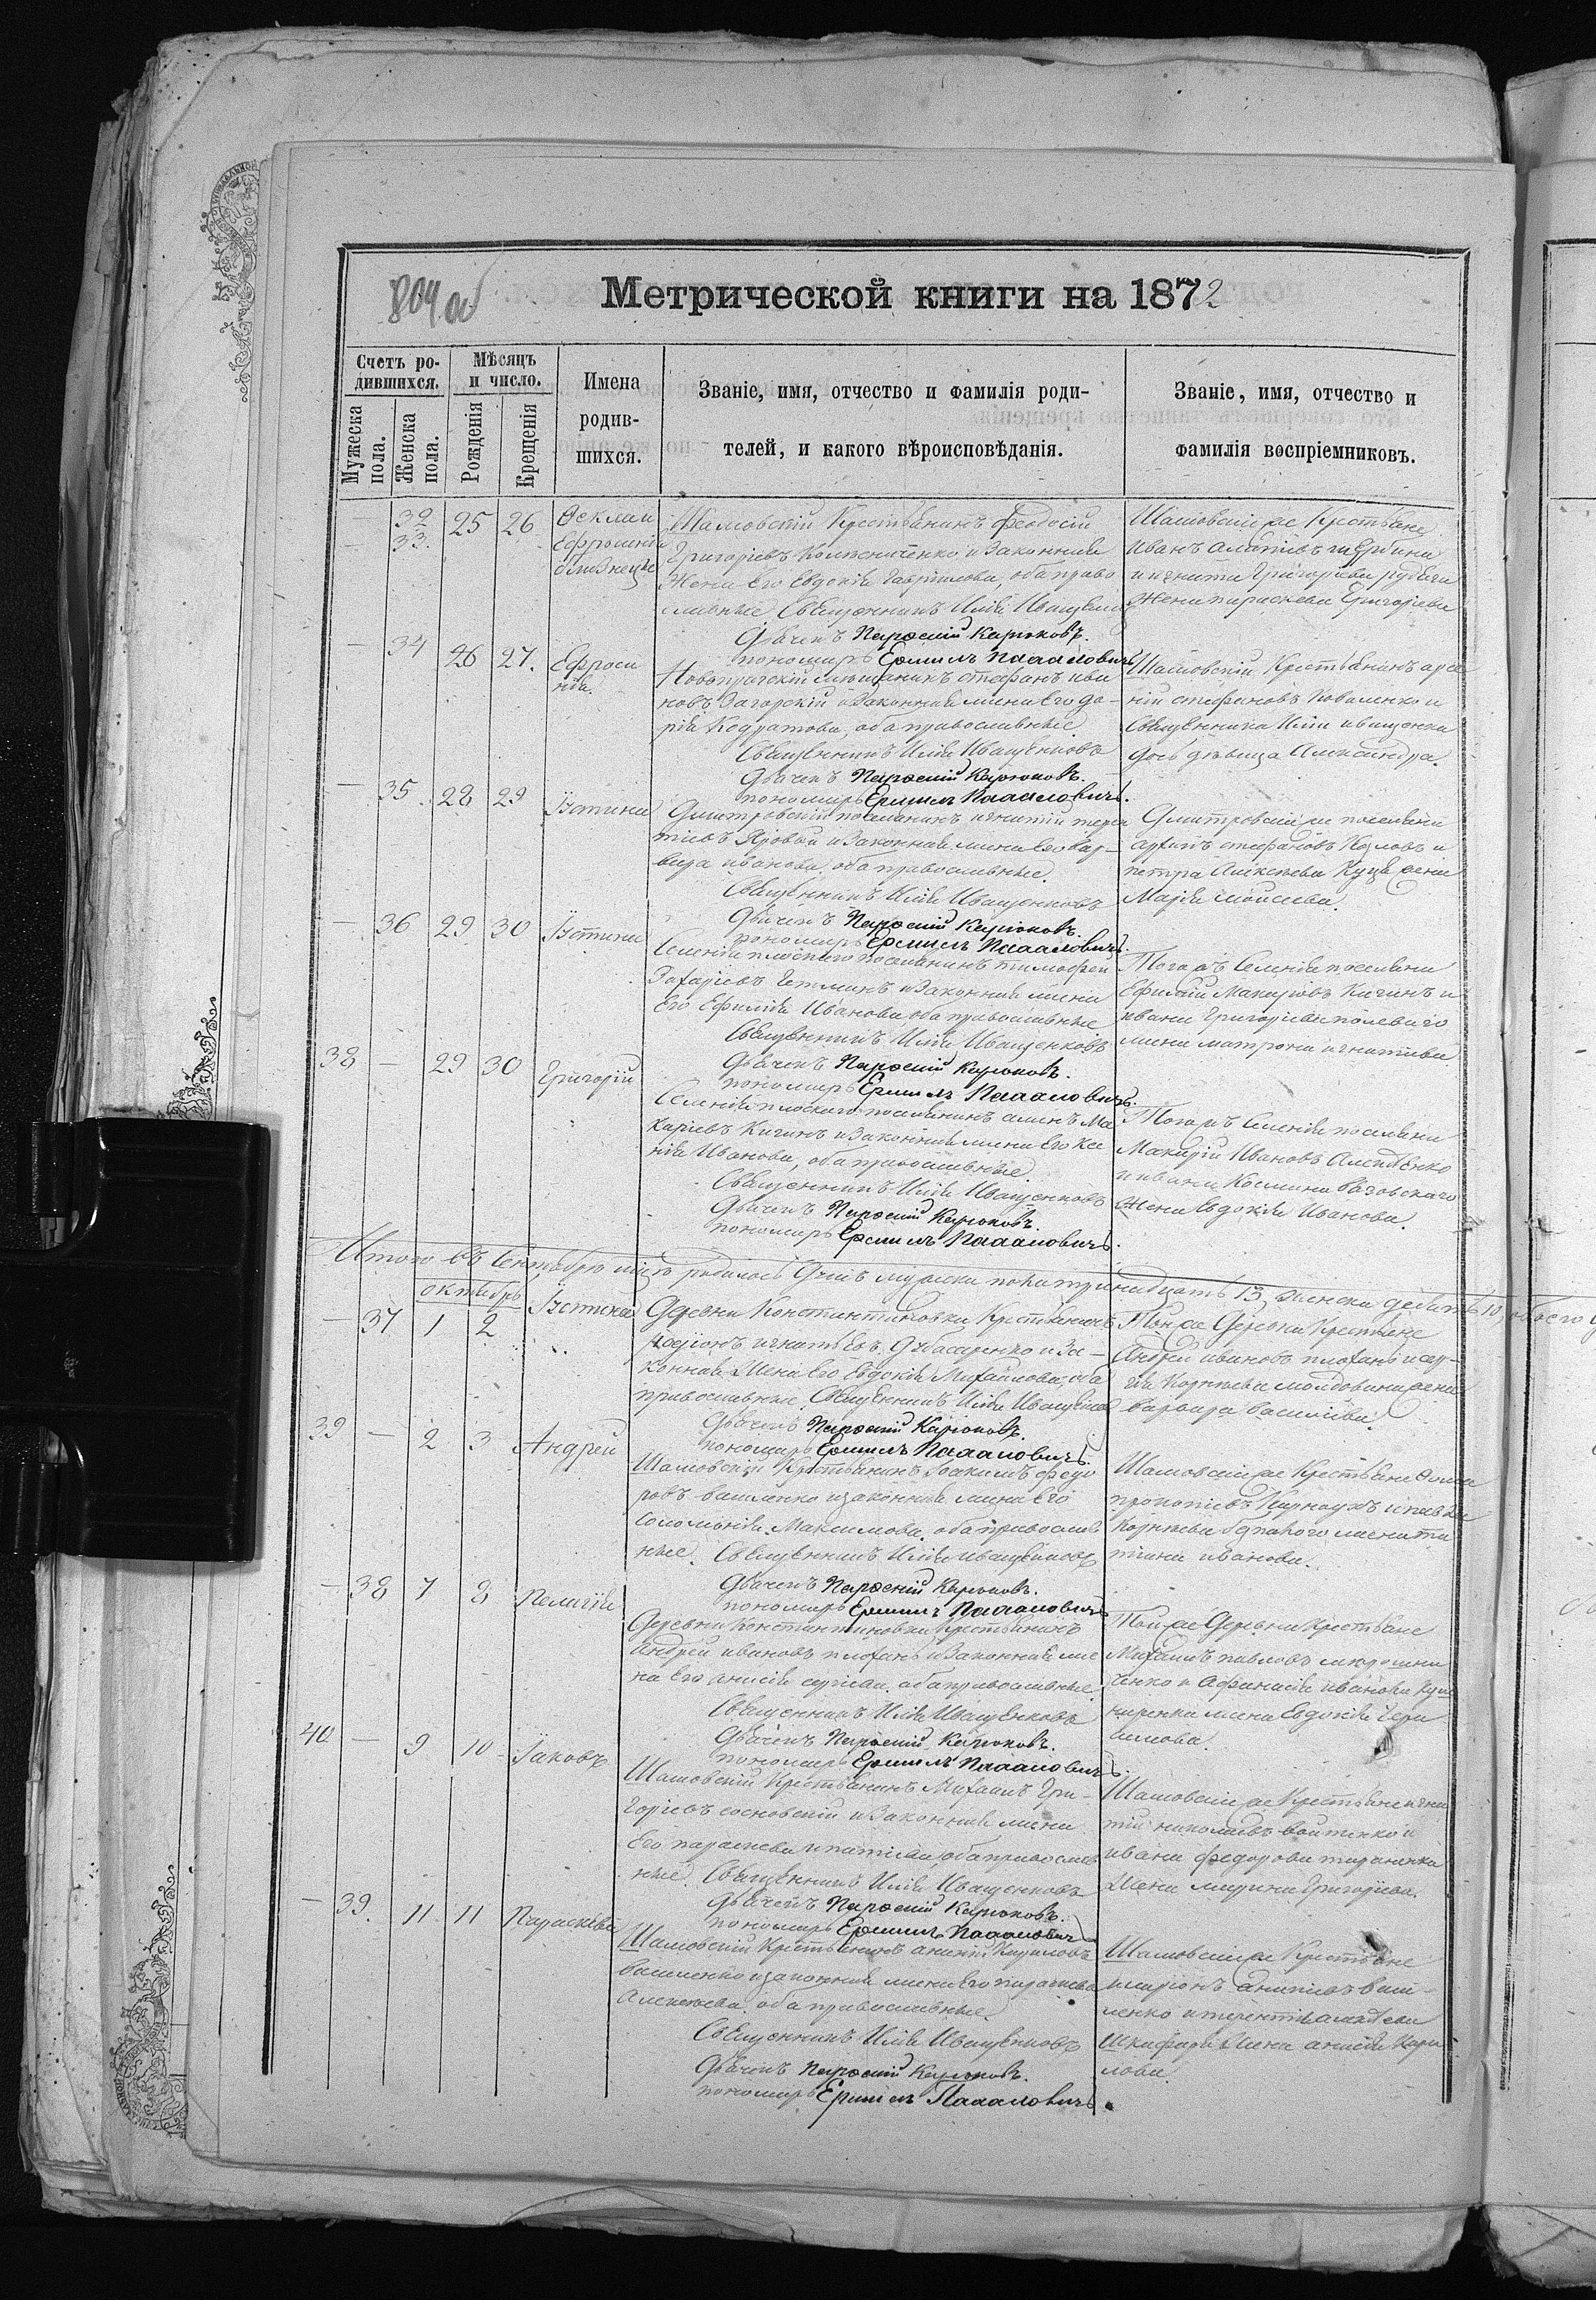 804 об
Метрической книги на 1872
Счетъ ро-
дившихся.
Мужеска
пола.
Женска
пола.
Мѣсяцъ
и число.
Рожденія
Крещенія
Имена
родив-
шихся.
Званіе, имя, отчество и фамилія роди-
телей, и какого вѣроисповѣданія.
Званіе, имя, отчество и
фамилія воспріемниковъ.
— 32 25 26
— 33.
близнецы
Шамовскій Крестьянинъ Феодосій
Григоріевъ и Законная
Жена Его Евдокія Гавриилова, оба право
славные Священникъ Илія Иващенко
Дьячекъ Парѳеній Карюковъ.
пономарь Ермилъ Палаловичъ
Шамовскіе Крестьяне
Иванъ
и игнатія Григоріева
Жена параскева Григоріева
— 34 26 27. Ефроси
нія.
стефанъ ива
новъ Загорскій и Законная жена Его да-
рія Кодратова, оба православные
Священникъ Илія Иващенковъ
Дьячекъ Парѳеній Карюковъ.
пономарь Ермилъ Палаловичъ.
Шамовскій Крестьянинъ арсе
ній стефановъ Коваленко и
Священника Иліи иващенка
дочь дѣвица Александра.
— 35 28 29 Іустина
Дмитровскій поселянинъ игнатій тере
тіевъ Яровой и Законная жена Его вар-
вара иванова, оба православные.
Священникъ Илія Иващенковъ
Дьячекъ Парѳеній Карюковъ.
пономарь Ермилъ Палаловичъ.
Дмитровскіе поселяне
архипъ стефановъ Козловъ и
петра Алексѣева жена
Марія моисеева.
— 36 29 30 Іустина
Селенія плоскаго поселянинъ тимофей
Захаріевъ Гетманъ и Законная жена
Его Ефимія Иванова оба православные
Священникъ Илія Иващенковъ
Дьячекъ Парѳеній Карюковъ.
пономарь Ермилъ Палаловичъ.
Того жъ Селенія поселяне
Ефимій Макаріовъ Кичинъ и
ивана Григоріева полеваго
жена матрона игнатіева
38 — 29 30 Григорій
Селенія плоскаго поселянинъ Ма
каріевъ Кичинъ и Законная жена Его Ксе
нія Иванова, оба православные.
Священникъ Илія Иващенковъ
Дьячекъ Парѳеній Карюковъ.
пономарь Ермилъ Палаловичъ.
Того жъ Селенія поселяне
Макарій Ивановъ
и ивана Космина
Жена Евдокія Иванова.
Итого въ Сентябрѣ мѣс. родилось Дѣтей мужеска пола тринадцать 13, женска десять 10, обоего
октябрь
— 37 1 2 Іустина
Деревни Константиновки Крестьянинъ
игнатьевъ Дубасаренко и За-
конная Жена Его Евдокія Михайлова, оба
православные. Священникъ Илія Иващенко
Дьячекъ Парѳеній Карюковъ.
пономарь Ермилъ Палаловичъ.
Той же Деревни Крестьяне
Андрей ивановъ плохань и сер-
гія Корнѣева молдована жена
варвара василіева.
39 — 2 3 Андрей
Шамовскій Крестьянинъ Іоакимъ Федо
ровъ василенко и законная жена Его
Соломонія Максимова, оба православ
ные. Священникъ Илія Иващенковъ
Дьячекъ Парѳеній Карюковъ.
пономарь Ермилъ Палаловичъ
Шамовскіе Крестьяне Фома
прокопіевъ Карнаухъ и павла
Корнѣева жена та
тіана иванова.
— 38 7 8 Пелагія
Деревни Константиновки Крестьянинъ
андрей ивановъ плохань и Законная же
на Его анисія сергіева, оба православные
Священникъ Илія Иващенковъ
Дьячекъ Парѳеній Карюковъ.
пономарь Ермилъ Палаловичъ.
Той же Деревни Крестьяне
Михаилъ павловъ мирошни
ченко и Афанасія иванова куш
ниренка жена Евдокія Гера
симова.
40 — 9 10 Іаковъ
Шамовскій Крестьянинъ Михаилъ Гри-
горіевъ сосновскій и Законная жена
Его параскева ипатіева, оба православ
ные. Священникъ Илія Иващенковъ
Дьячекъ Парѳеній Карюковъ.
пономарь Ермилъ Палаловичъ
Шамовскіе Крестьяне игна
тій николаевъ войтенко и
ивана федорова тараненка
Жена марина Григоріева.
— 39. 11 11 Параскева
Шамовскій Крестьянинъ Кириловъ
василенко и законная жена Его параскева
Алексѣева, оба православные.
Священникъ Илія Иващенковъ
Дьячекъ Парѳеній Карюковъ.
пономарь Ермилъ Палаловичъ.
Шамовскіе Крестьяне
иларіонъ васи-
ленко и терентія
Жена анисія Кири
лова.